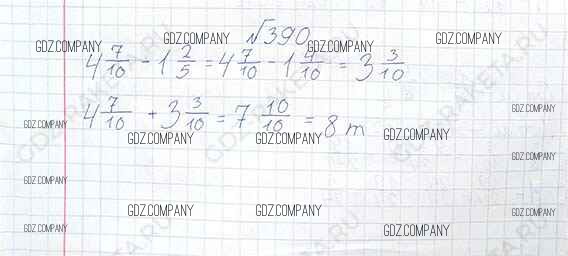 √390
4 7/10 - 1 2/5 = 4 7/10 - 1 4/10 = 3 3/10
4 7/10 + 3 3/10 = 7 10/10 = 8 m
GDZ.COMPANY GDZ.COMPANY GDZ.COMPANY GDZ.COMPANY
GDZ.COMPANY GDZ.COMPANY GDZ.COMPANY GDZ.COMPANY GDZ.COMPANY
GDZ.COMPANY GDZ.COMPANY
GDZ.COMPANY GDZ.COMPANY GDZ.COMPANY
GDZ.COMPANY GDZ.COMPANY
GDZ-RAKETA.RU